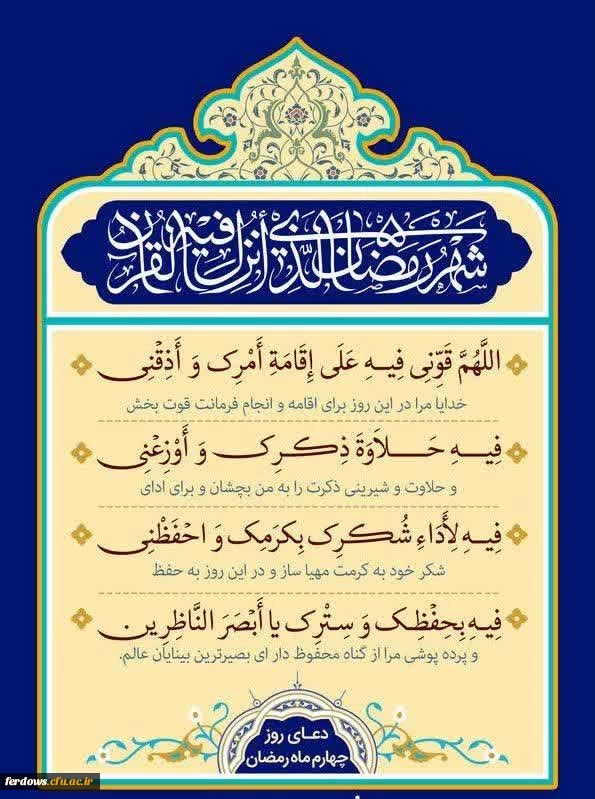 شهر رمضان الذی أنزل فیه القرآن
اللَّهُمَّ قَوِّنِی فِیهِ عَلَی إِقَامَةِ أَمْرِک وَ أَذِقْنِی
خدایا مرا در این روز برای اقامه و انجام فرمانت قوت بخش
فِیهِ حَلاَوَةَ ذِکْرِک وَ أَوْزِعْنِی
و حلاوت و شیرینی ذکرت را به من بچشان و برای ادای
فِیهِ لِأَدَاءِ شُکْرِک بِکَرَمِک وَ احْفَظْنِی
شکر خود به کرمت مهیا ساز و در این روز به حفظ
فِیهِ بِحِفْظِک وَ سِتْرِک یا أَبْصَرَ النَّاظِرِین
و پرده پوشی مرا از گناه محفوظ دار ای بصیرترین بینایان عالم.
دعای روز
چهارم ماه رمضان
ferdows.cfu.ac.ir